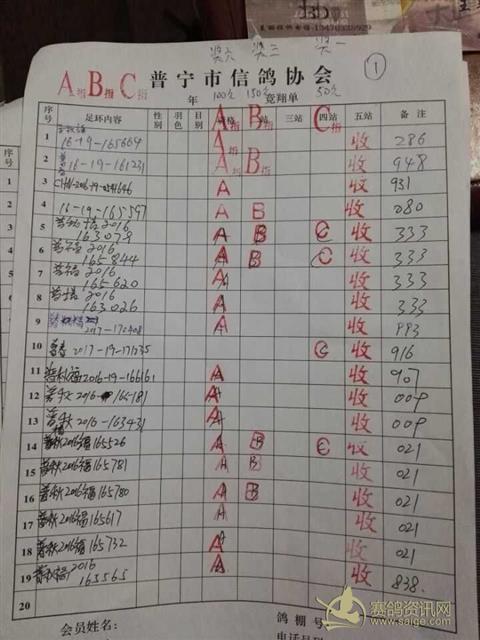 奖六 奖三 奖一
①
A指 B指 C指 普宁市信鸽协会
年 100名 150名 竞翔单 50名
序号 足环内容 性别 羽色 目砂 A指 B指 三站 C指 五站 备注
1 16-19-165664 A指 收 286
2 16-19-161231 A指 B指 收 948
3 CHN-2016-19-0241646 A 收 931
4 16-19-165597 A B 收 080
5 2016 163079 A B C 收 333
6 2016 165844 A B C 收 333
7 2016 165620 A 收 333
8 2016 163026 A 收 333
9 2017-172408 A 收 883
10 2017-19-171235 C 收 916
11 普秋福2016-19-166161 A 收 907
12 普秋2016-165181 A 收 009
13 普秋2016-163431 A 收 009
14 普秋2016福165526 A B C 收 021
15 普秋2016福165781 A B 收 021
16 普秋2016福165780 A B 收 021
17 普秋2016福165617 A 收 021
18 普秋2016福165732 A 收 021
19 普秋福2016 165565 A 收 838
20
会员姓名: 鸽棚号
赛鸽资讯网
www.saige.com